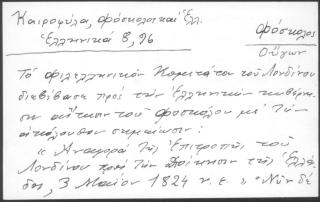 Καιροφύλα, Φόσκολος και Ελλ.
Ελληνικά 8, 96
Φόσκολος
Ούγων
Τό φιλελληνικόν Κομιτάτον του Λονδίνου
διεβίβασε πρός την Ελληνικήν κυβέρνη-
σιν αίτησιν του Φοσκόλου με την
ακόλουθον σημείωσιν:
" Αναφορά της Επιτροπής του
Λονδίνου προς την Διοίκησιν της Ελλά-
δος, 3 Μαΐου 1824 ν. ε. " Νυν δέ